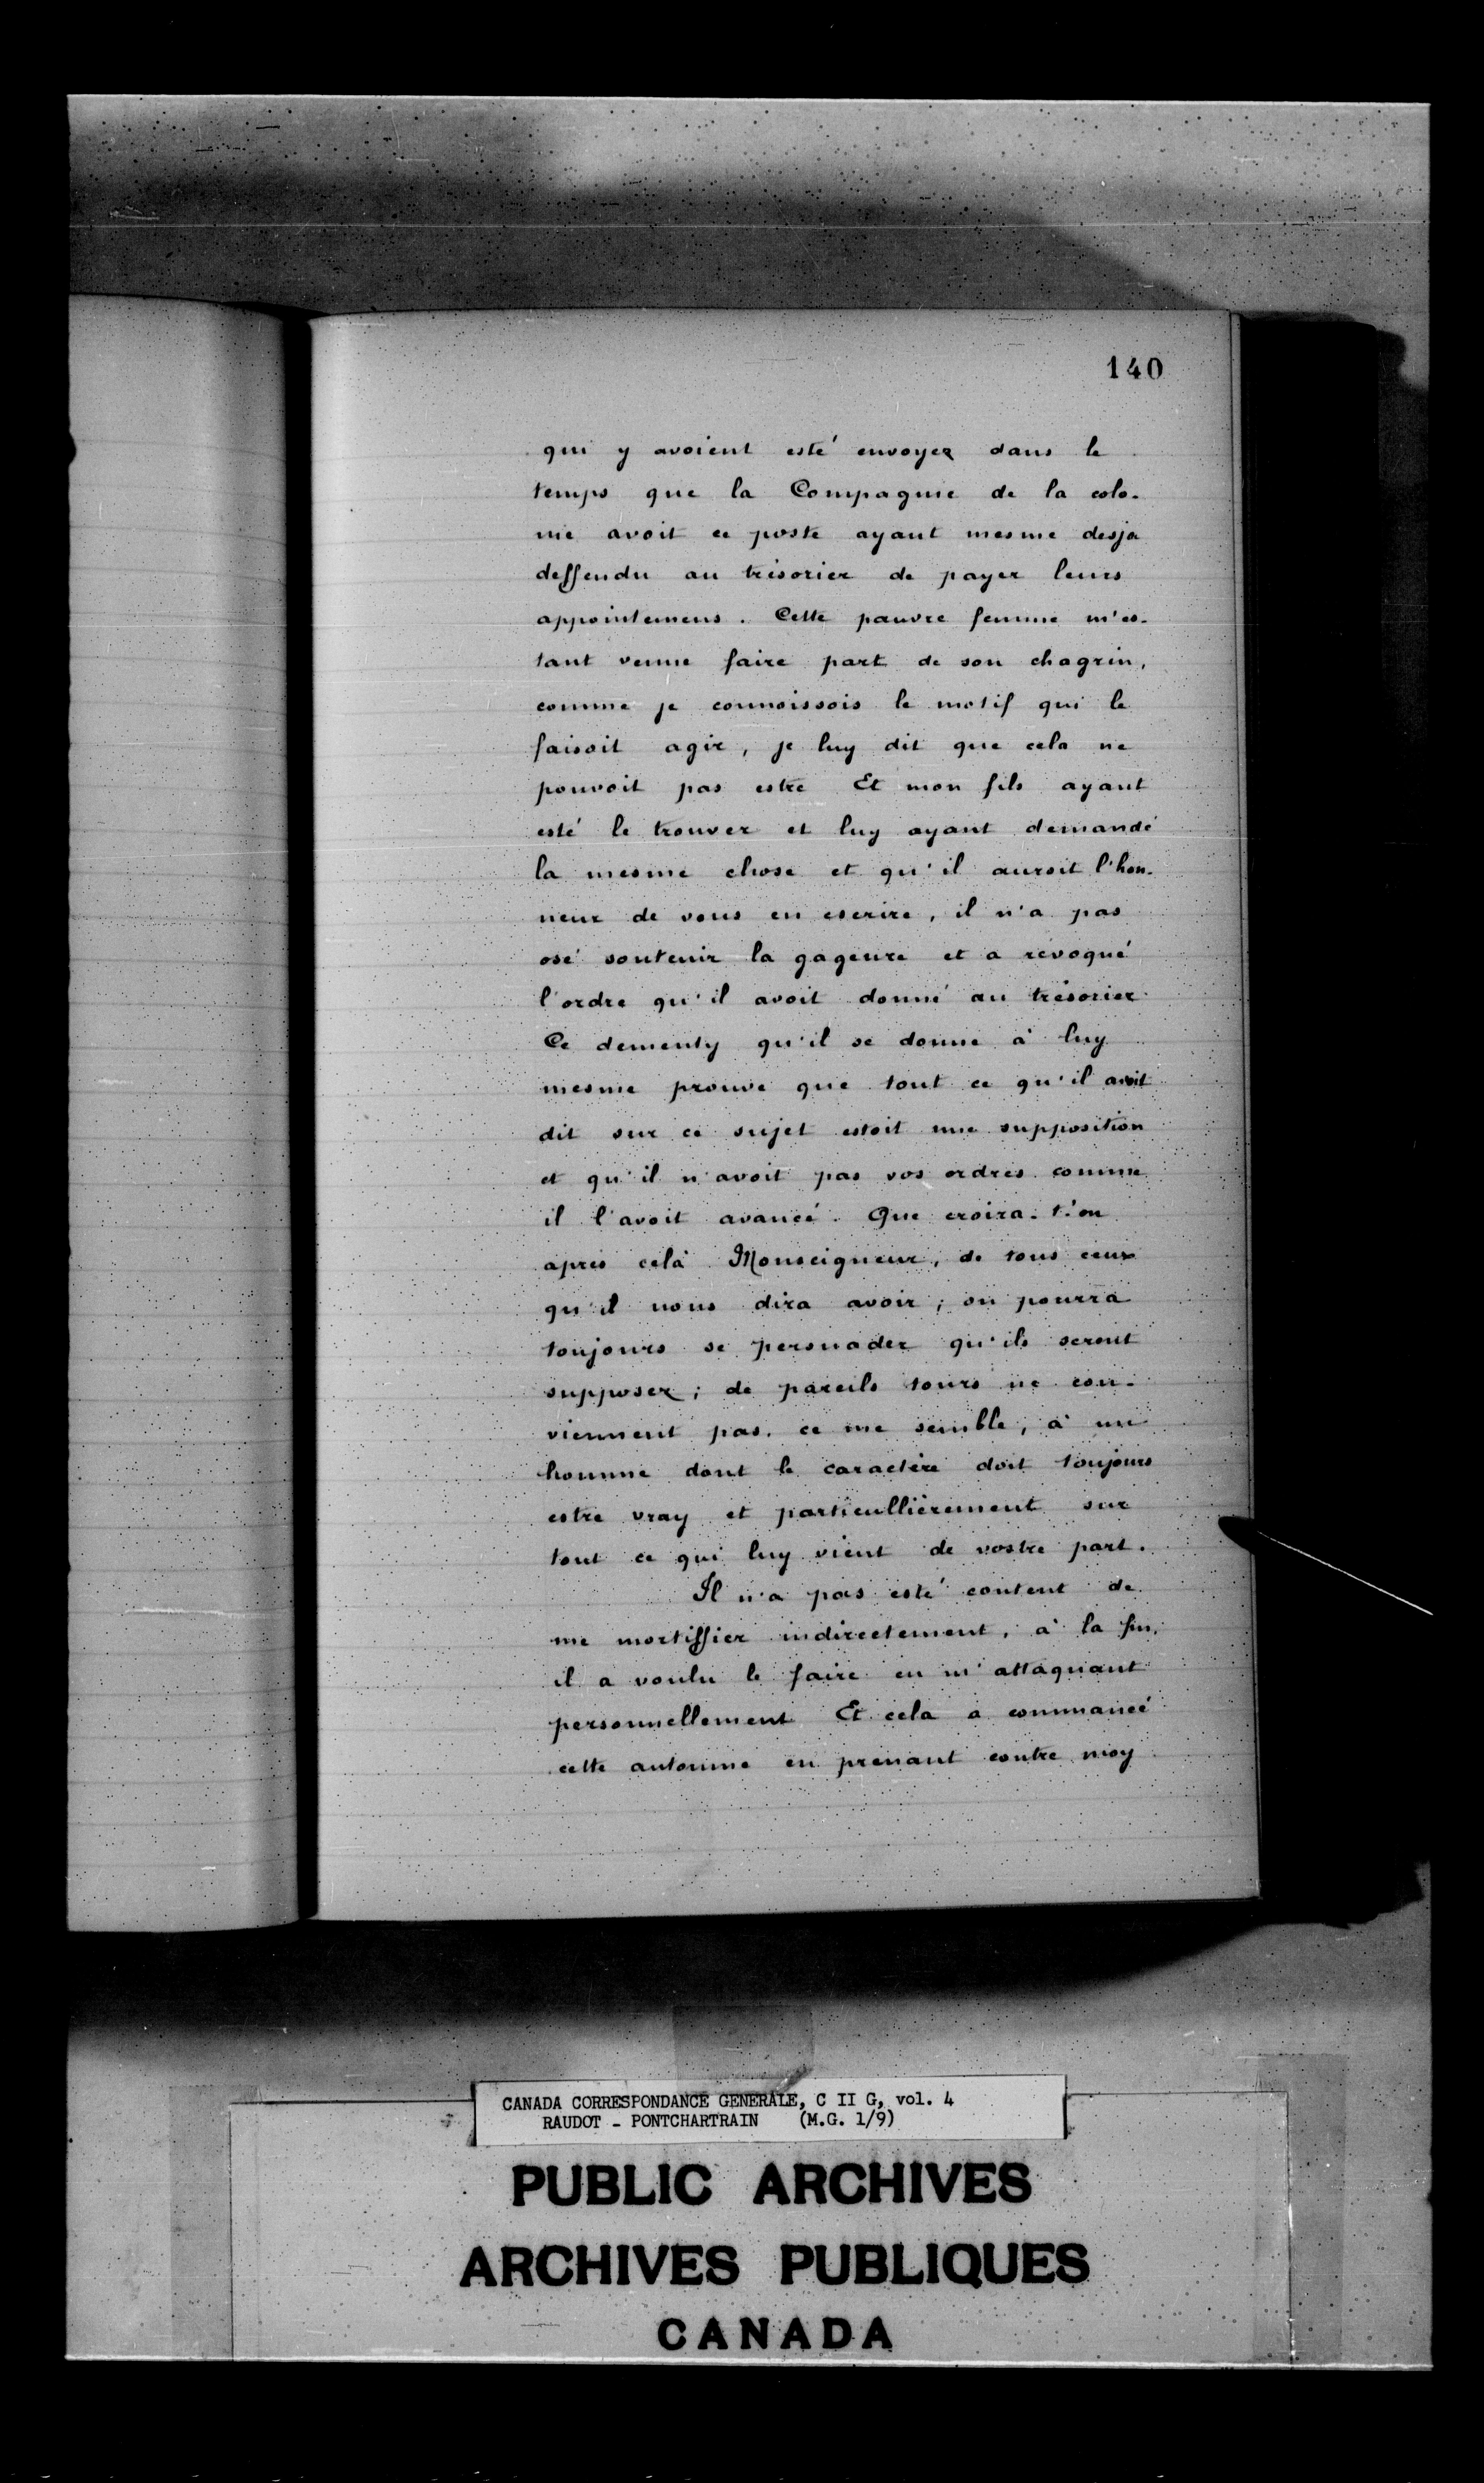 140
qui y avoient esté envoyez dans le
temps que la Compagnie de la colo-
nie avoit ce poste ayant mesme desja
deffendu au trésorier de payer leurs
appointemens. Cette pauvre femme m'es-
tant venue faire part de son chagrin,
comme je connoissois le motif qui le
faisoit agir, je luy dit que cela ne
pouvoit pas estre Et mon fils ayant
esté le trouver et luy ayant demandé
la mesme chose et qu'il auroit l'hon-
neur de vous en escrire, il n'a pas
osé soutenir la gageure et a révoqué
l'ordre qu'il avoit donné au trésorier
Ce dementy qu'il se donne à luy
mesme prouve que tout ce qu'il avoit
dit sur ce sujet estoit une supposition
et qu'il n'avoit pas vos ordres comme
il l'avoit avancé. Que croira-t'on
après celà Monseigneur, de tous ceux
qu'il nous dira avoir; on pourra
toujours se persuader qu'ils seront
supposez; de pareils tours ne con-
viennent pas, ce me semble, à un
homme dont le caractère doit toujours
estre vray et particullièrement sur
tout ce qui luy vient de vostre part.
Il n'a pas esté content de
me mortiffier indirectement, à la fin,
il a voulu le faire en m'attaquant
personnellement Et cela a commancé
cette automne en prenant contre moy
CANADA CORRESPONDANCE GENERALE, C II G, vol. 4
RAUDOT - PONTCHARTRAIN (M.G. 1/9)
PUBLIC ARCHIVES
ARCHIVES PUBLIQUES
CANADA